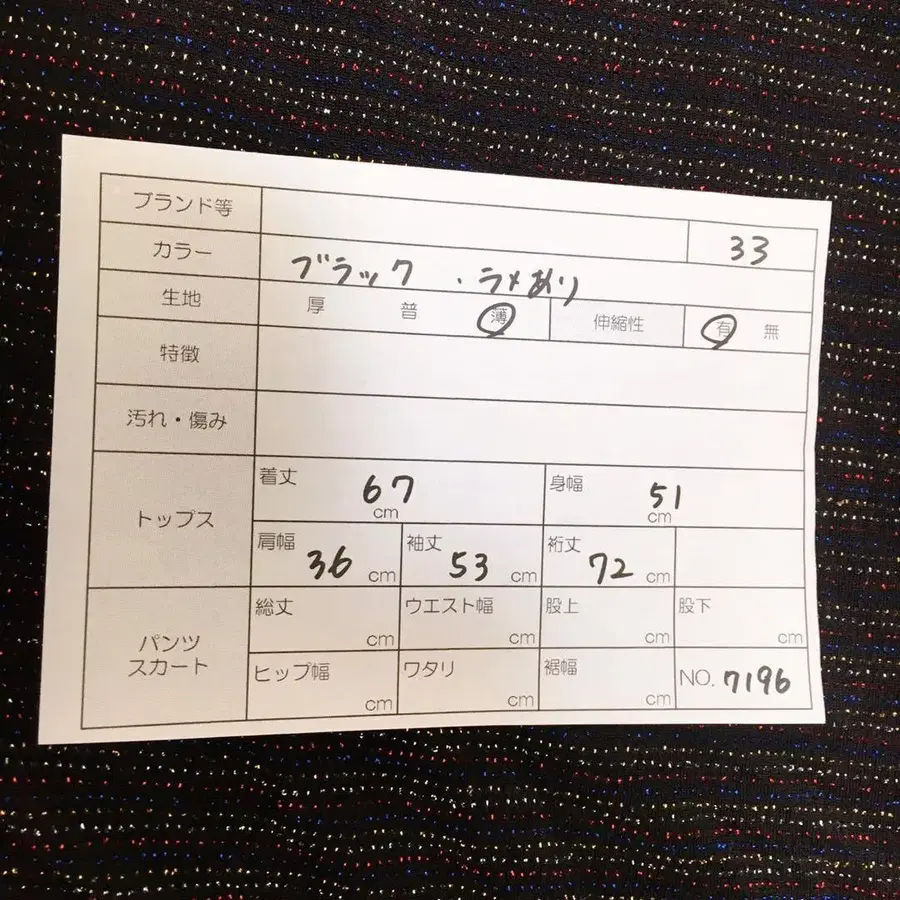 ブランド等
33
カラー ブラック ・ラメあり
生地 厚 普 薄 伸縮性 有 無
特徴
汚れ・傷み
トップス
着丈 67 cm 身幅 51 cm
肩幅 36 cm 袖丈 53 cm 裄丈 72 cm
パンツ
スカート
総丈 cm ウエスト幅 cm 股上 cm 股下 cm
ヒップ幅 cm ワタリ cm 裾幅 cm NO. 7196